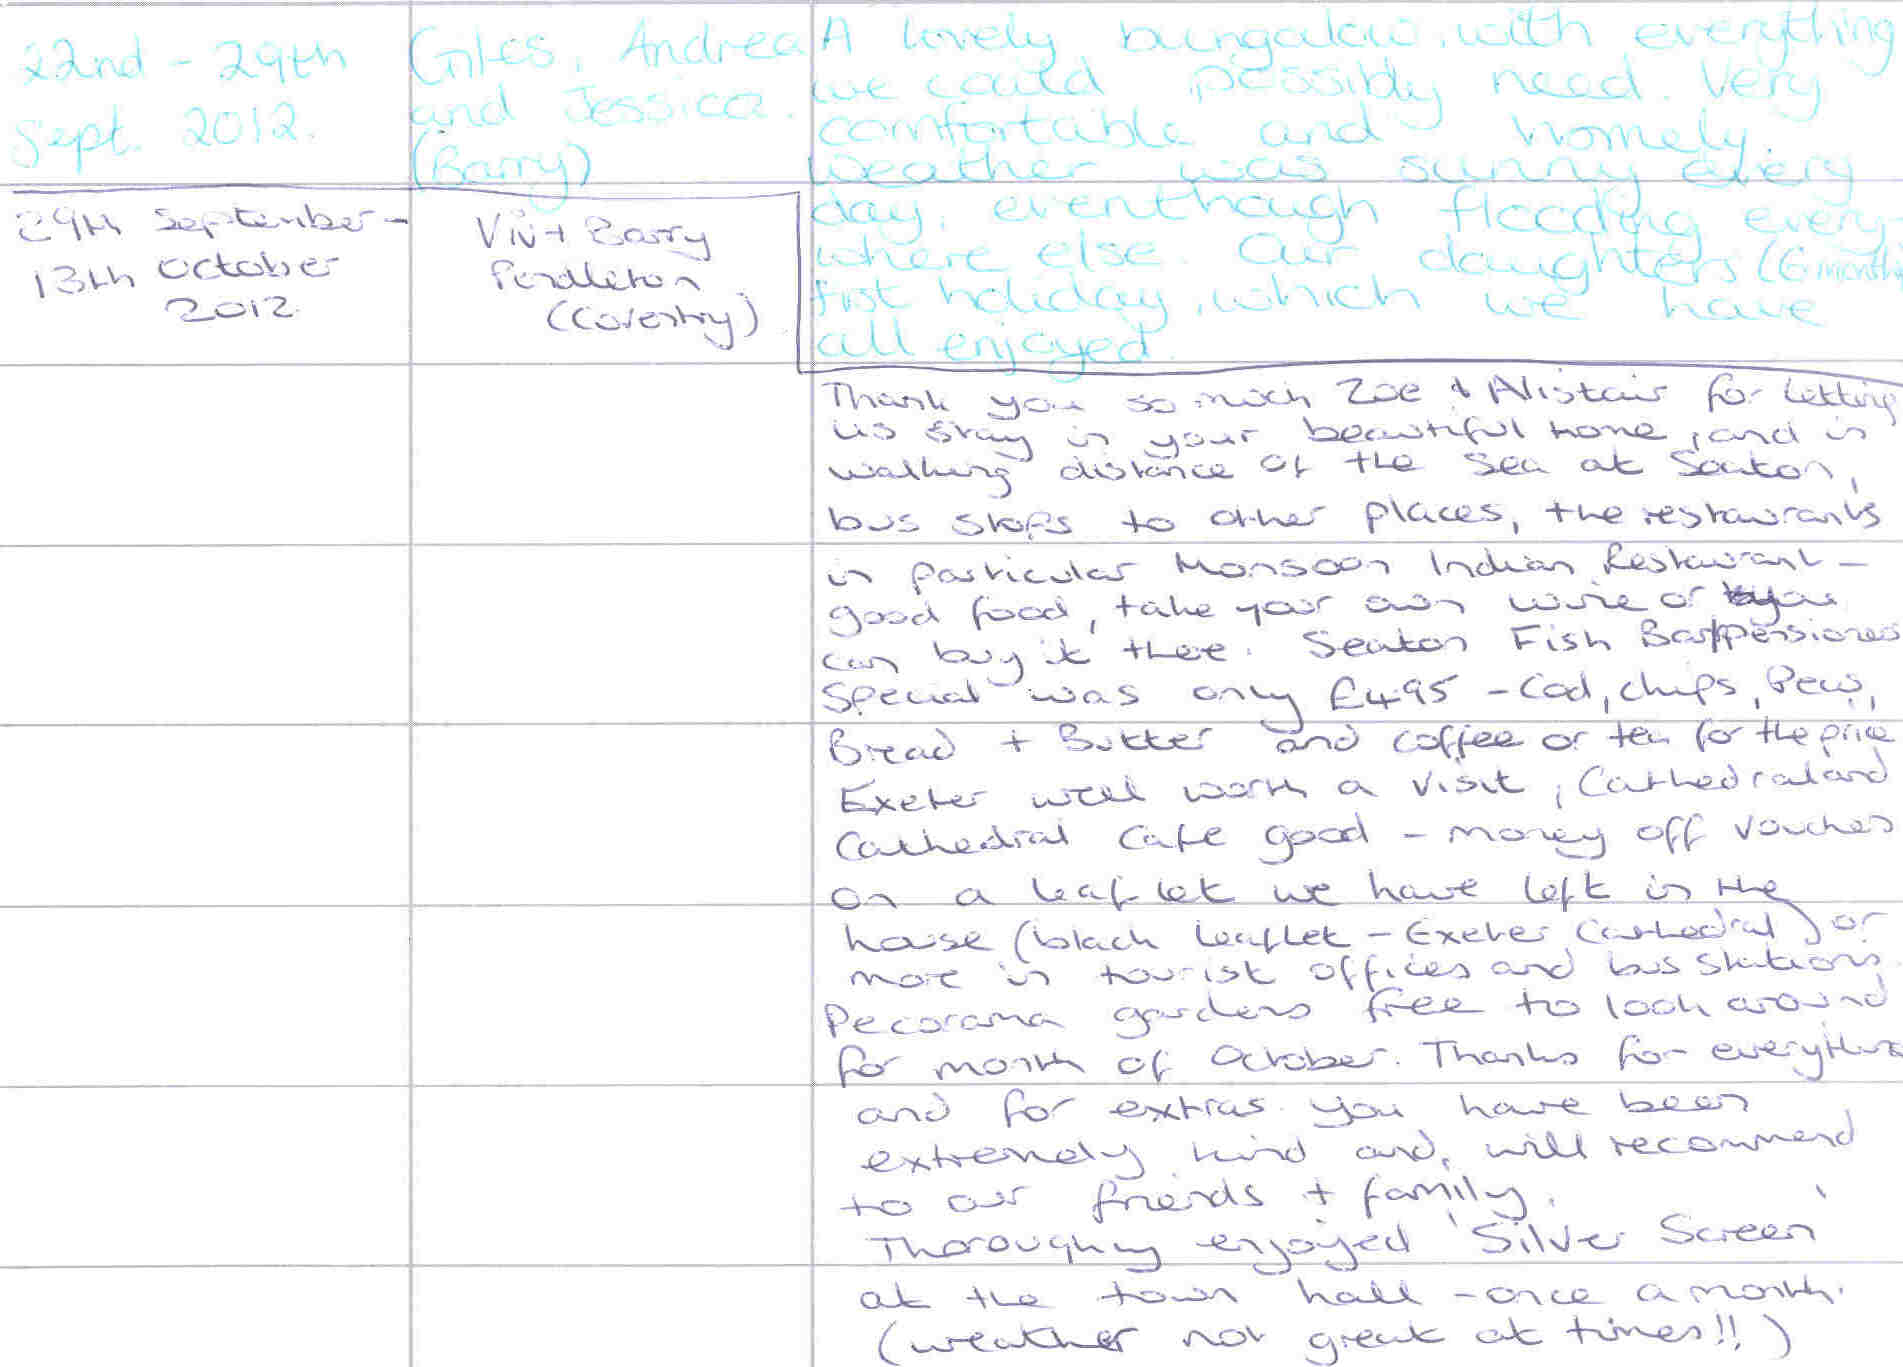 22nd - 29th
Sept. 2012.
Giles, Andrea
and Jessica.
(Barry)
A lovely bungalow, with everything
we could possibly need. Very
comfortable and homely.
Weather was sunny every
day, eventhough flooding every
where else. Our daughters (6 months)
first holiday, which we have
all enjoyed.
29th September -
13th October
2012.
Viv + Barry
Pendleton
(Coventry)
Thank you so much Zoe & Alistair for letting
us stay in your beautiful home, and in
walking distance of the sea at Seaton,
bus stops to other places, the restaurants
in particular Monsoon Indian Restaurant -
good food, take your own wine or you
can buy it there. Seaton Fish Bar/pensioners
Special was only £4.95 - Cod, chips, Peas,
Bread + Butter and coffee or tea for the price
Exeter well worth a visit, Cathedral and
Cathedral Cafe good - money off vouchers
on a leaflet we have left in the
house (black leaflet - Exeter Cathedral) or
more in tourist offices and bus stations.
Pecorama gardens free to look around
for month of October. Thanks for everything
and for extras. You have been
extremely kind and, will recommend
to our friends + family.
Thoroughly enjoyed 'Silver Screen'
at the town hall - once a month.
(weather not great at times!!)